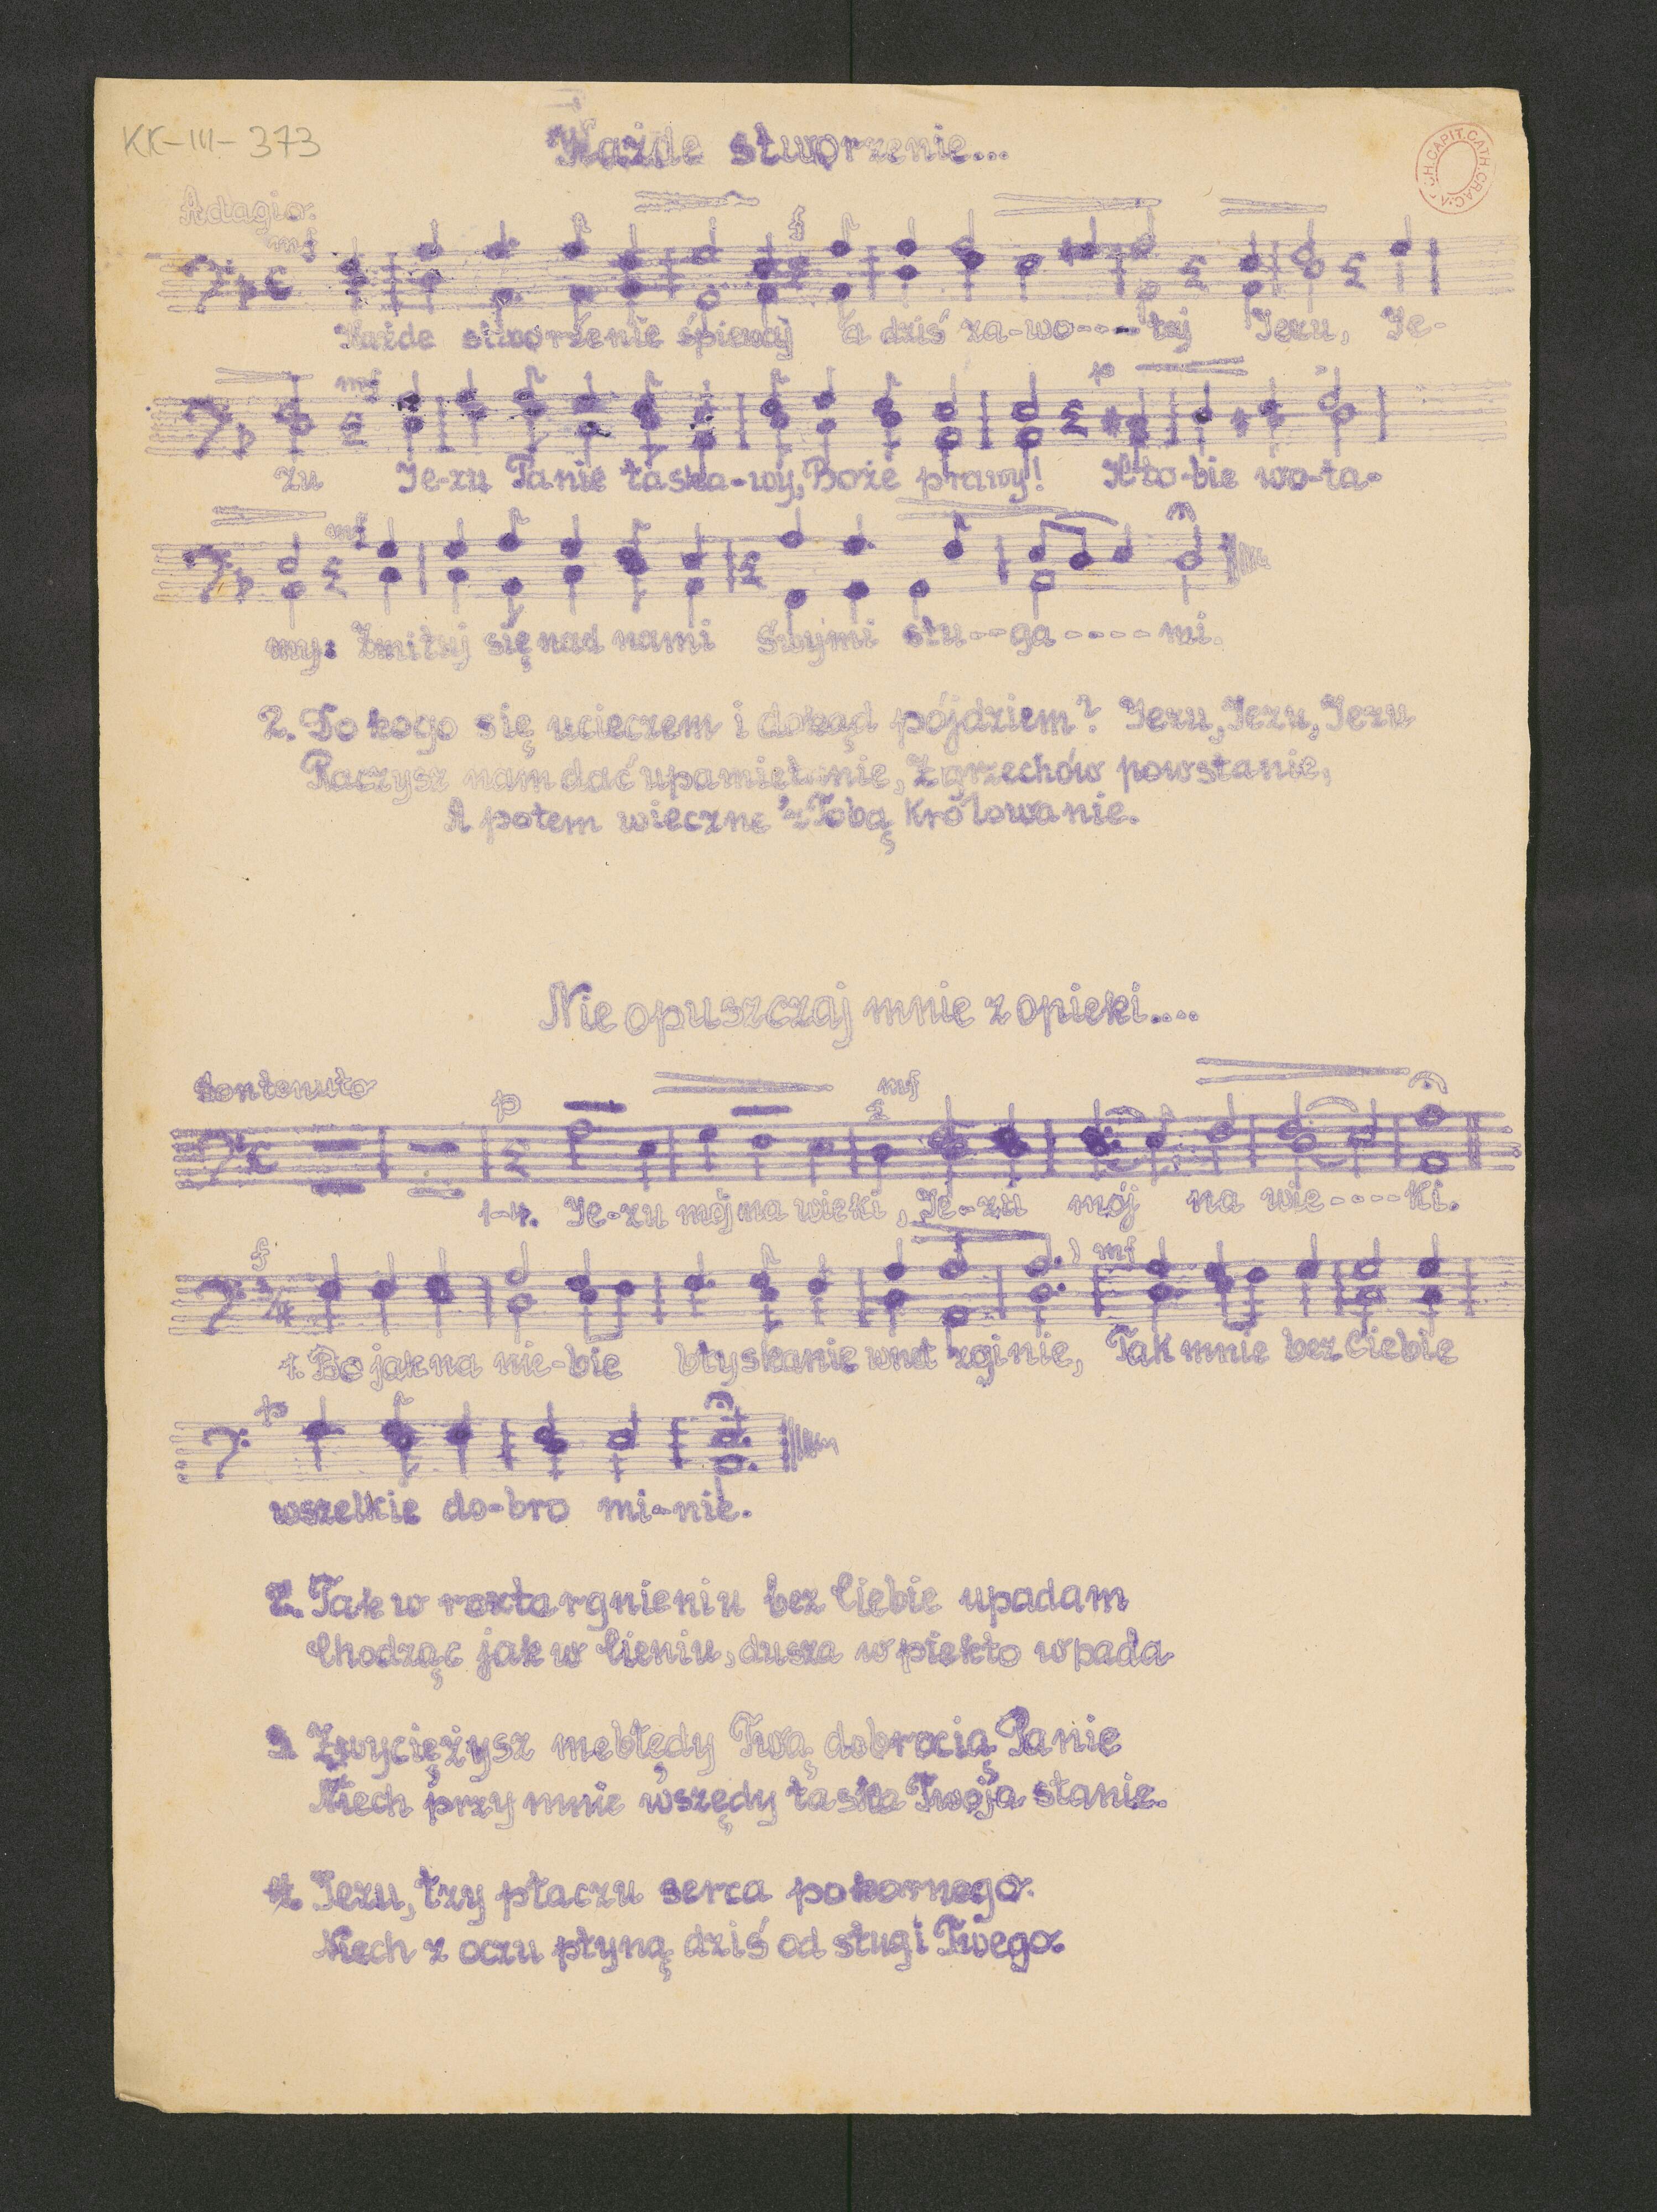 KK-III-373
Każde stworzenie...
ARCH. CAPIT. CATH. CRAC.
Adagio.
mf f
Każde stworzenie śpiewaj a dziś za-wo----łaj Jezu, Je-
mf p
zu Je-zu Panie łaska-wy, Boże prawy! K'to-bie wo-ła-
mf
my: Zmiłuj się nad nami Swymi słu--ga----mi.
2. Do kogo się ucieczem i dokąd pójdziem? Jezu, Jezu, Jezu
Raczysz nam dać upamiętanie, Z grzechów powstanie,
A potem wieczne z Tobą Królowanie.
Nie opuszczaj mnie z opieki....
Sontenuto
p mf
1-4. Je-zu mój na wieki, Je-zu mój na wie----ki.
f 3/4 mf
1. Bo jak na nie-bie błyskanie wnet zginie, Tak mnie bez Ciebie
p
wszelkie do-bro mi-nie.
2. Tak w roztargnieniu bez Ciebie upadam
Chodząc jak w Cieniu, dusza w piekło wpada
3 Zwyciężysz me błędy Twą dobrocią Panie
Niech przy mnie wszędy łaska Twoja stanie.
4. Jezu, łzy płaczu serca pokornego.
Niech z oczu płyną dziś od sługi Twego.